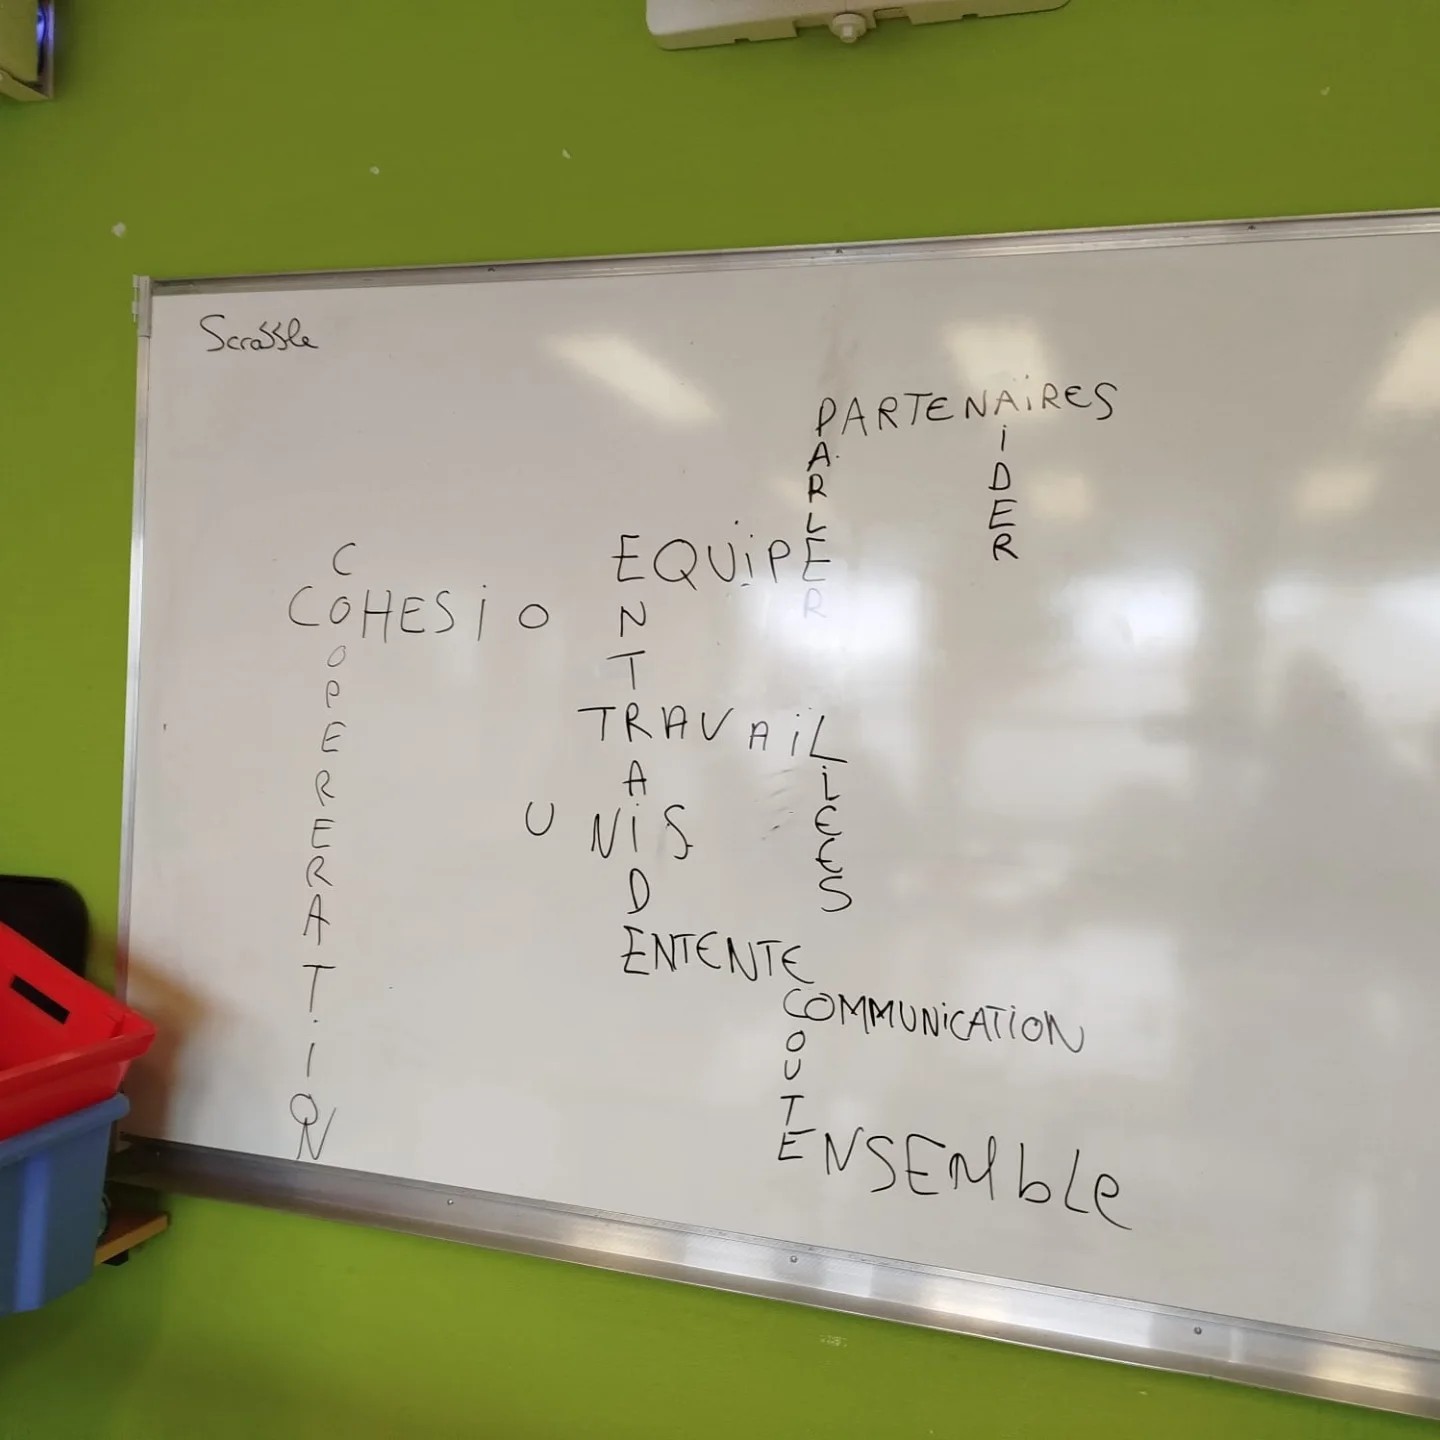 Scrabble
PARTENAiRES
PARLER
AiDER
EQUiPE
COHESiON
COOPERERATION
ENTRAiDE
TRAVAiL
LiEES
UNiS
ENTENTE
ECOUTE
COMMUNiCATiON
ENSEMbLe